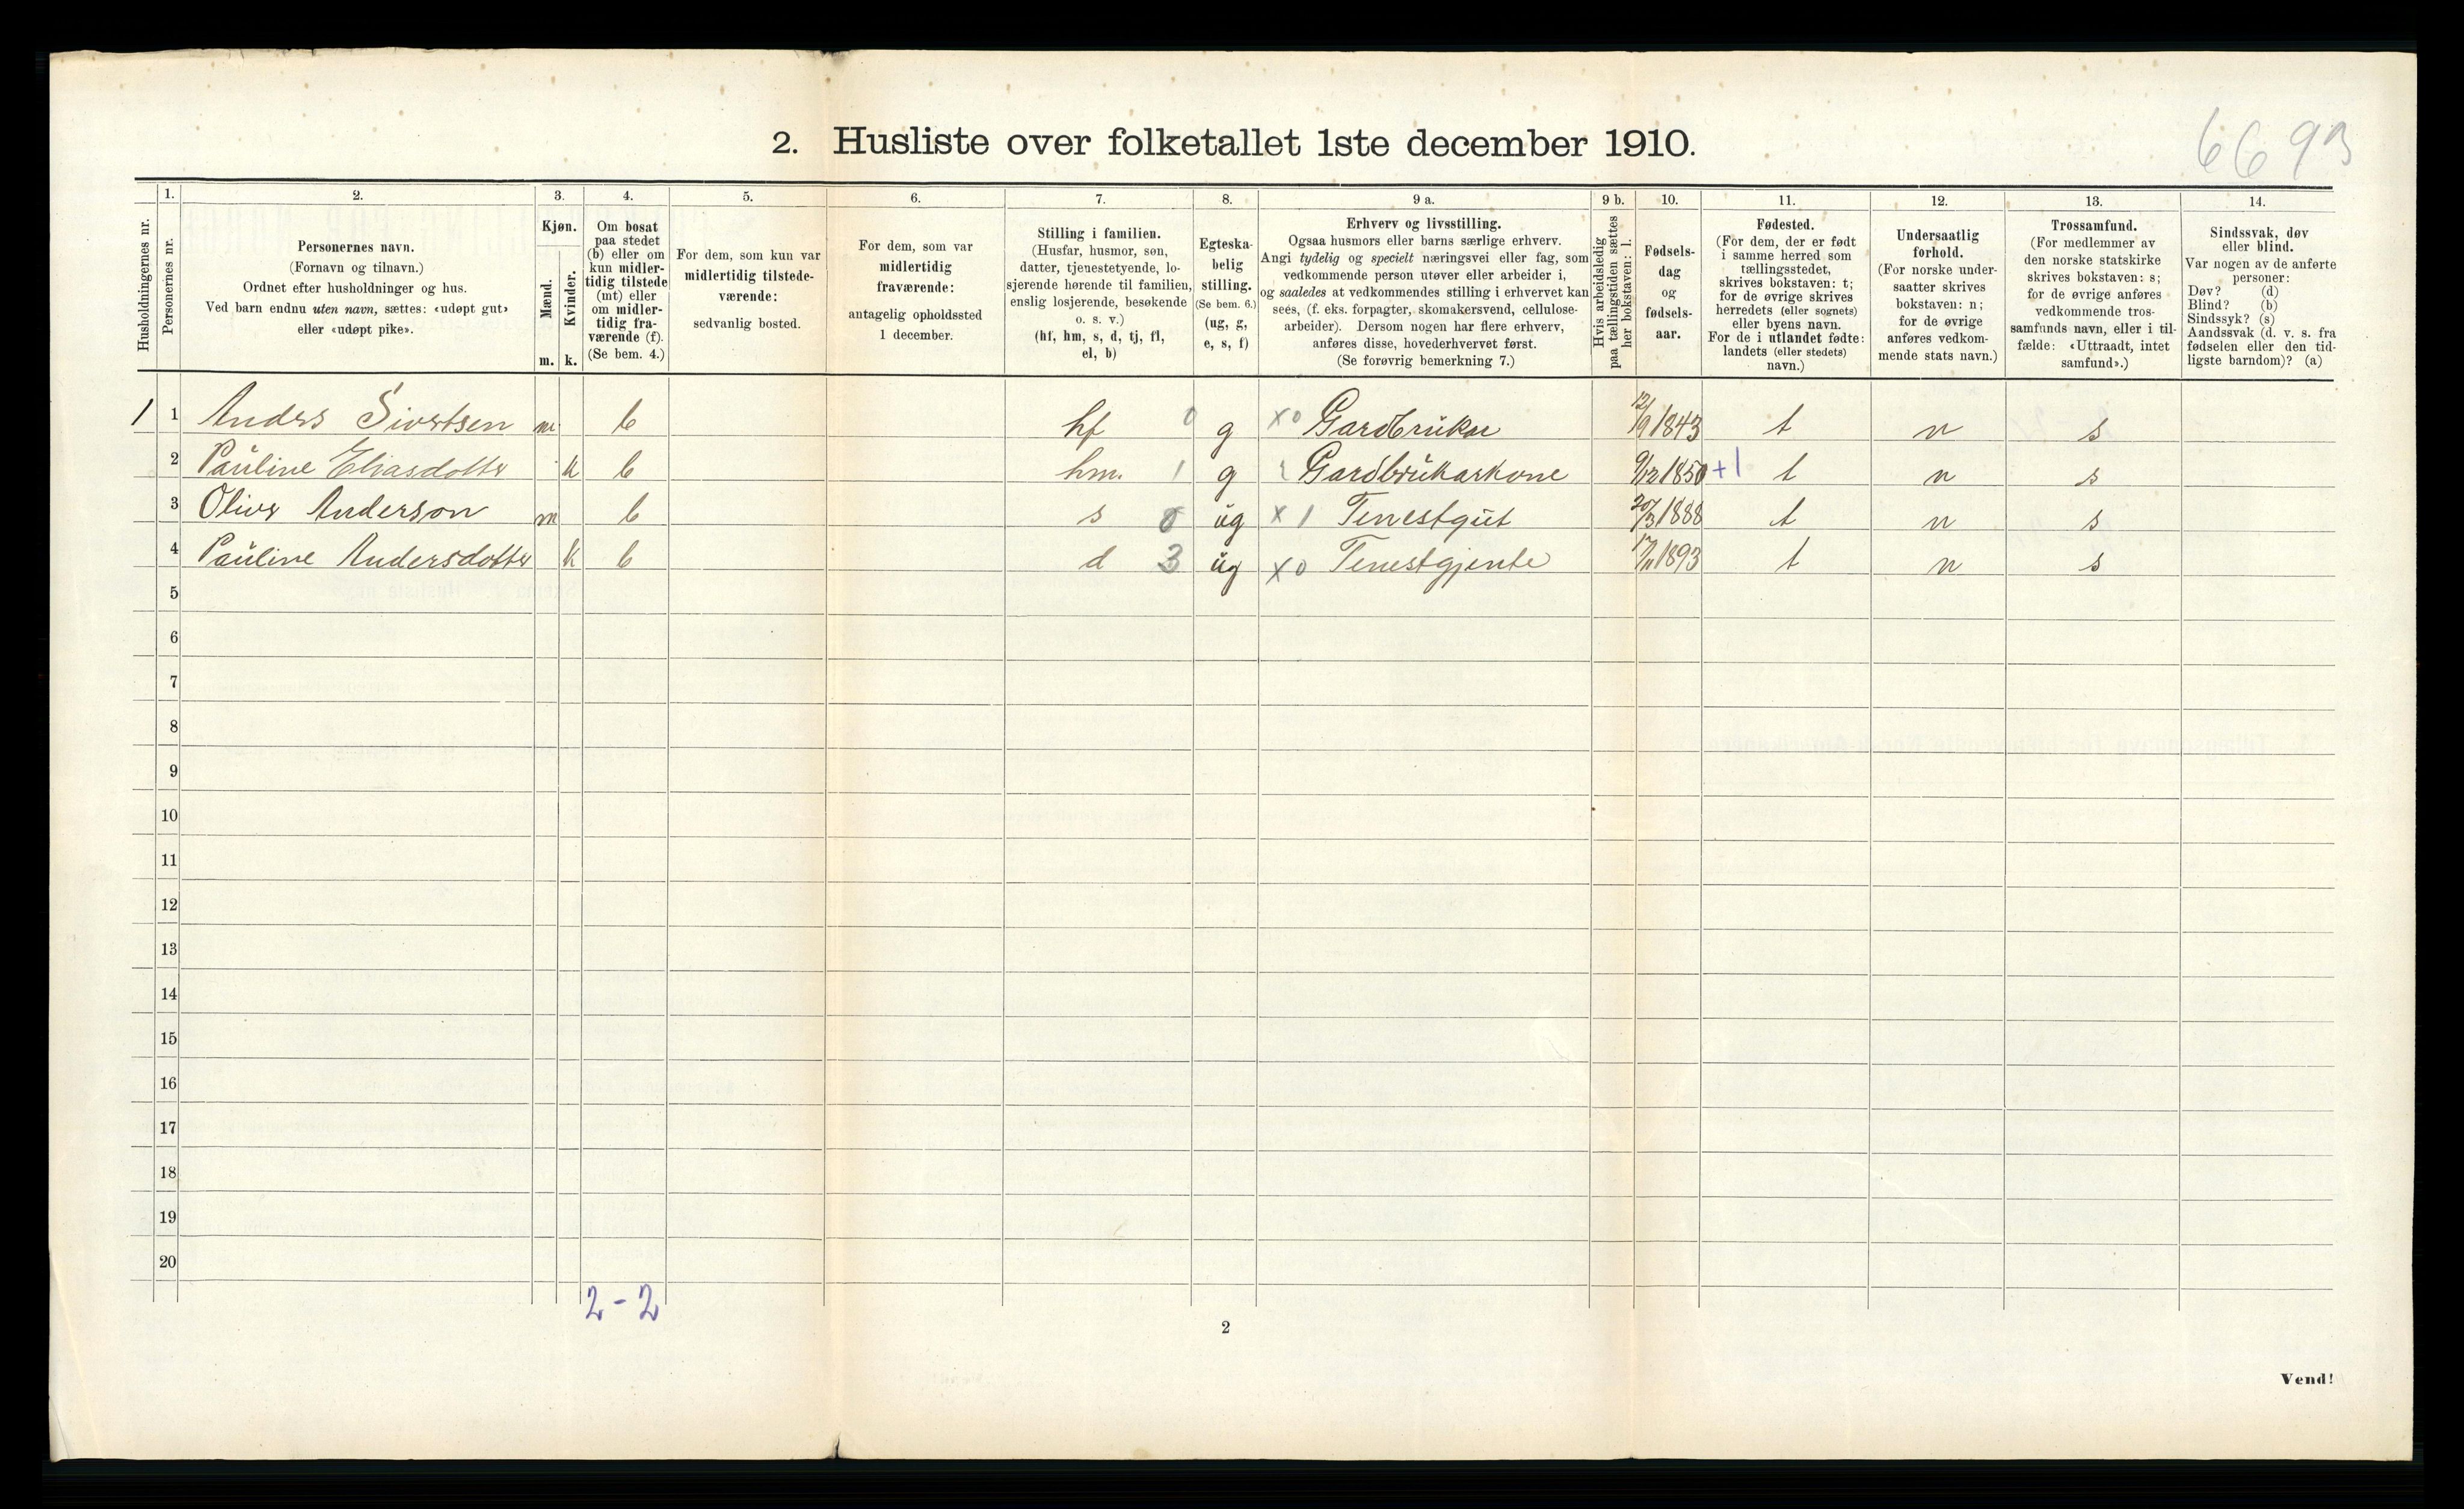 2. Husliste over folketallet 1ste december 1910.
6693
Husholdningernes nr.
1.
Personernes nr.
2.
Personernes navn.
(Fornavn og tilnavn.)
Ordnet efter husholdninger og hus.
Ved barn endnu uten navn, sættes: «udøpt gut»
eller «udøpt pike».
3.
Kjøn.
Mænd.
Kvinder.
m. k.
4.
Om bosat
paa stedet
(b) eller om
kun midler-
tidig tilstede
(mt) eller
om midler-
tidig fra-
værende (f).
(Se bem. 4.)
5.
For dem, som kun var
midlertidig tilstede-
værende:
sedvanlig bosted.
6.
For dem, som var
midlertidig
fraværende:
antagelig opholdssted
1 december.
7.
Stilling i familien.
(Husfar, husmor, søn,
datter, tjenestetyende, lo-
sjerende hørende til familien,
enslig losjerende, besøkende
o. s. v.)
(hf, hm, s, d, tj, fl,
el, b)
8.
Egteska-
belig
stilling.
(Se bem. 6.)
(ug, g,
e, s, f)
9 a.
Erhverv og livsstilling.
Ogsaa husmors eller barns særlige erhverv.
Angi tydelig og specielt næringsvei eller fag, som
vedkommende person utøver eller arbeider i,
og saaledes at vedkommendes stilling i erhvervet kan
sees, (f. eks. forpagter, skomakersvend, cellulose-
arbeider). Dersom nogen har flere erhverv,
anføres disse, hovederhvervet først.
(Se forøvrig bemerkning 7.)
9 b.
Hvis arbeidsledig
paa tællingstiden sættes
her bokstaven: l.
10.
Fødsels-
dag
og
fødsels-
aar.
11.
Fødested.
(For dem, der er født
i samme herred som
tællingsstedet,
skrives bokstaven: t;
for de øvrige skrives
herredets (eller sognets)
eller byens navn.
For de i utlandet fødte:
landets (eller stedets)
navn.)
12.
Undersaatlig
forhold.
(For norske under-
saatter skrives
bokstaven: n;
for de øvrige
anføres vedkom-
mende stats navn.)
13.
Trossamfund.
(For medlemmer av
den norske statskirke
skrives bokstaven: s;
for de øvrige anføres
vedkommende tros-
samfunds navn, eller i til-
fælde: «Uttraadt, intet
samfund».)
14.
Sindssvak, døv
eller blind.
Var nogen av de anførte
personer:
Døv? (d)
Blind? (b)
Sindssyk? (s)
Aandssvak (d. v. s. fra
fødselen eller den tid-
ligste barndom)? (a)
1 1 Anders Sivertsen m b hf 0 g x0 Gardbruker 12/9 1843 t n s
2 Pauline Eliasdotter k b hm. 1 g Gardbrukarkone 9/12 1850 +1 t n s
3 Oliver Anderson m b s 0 ug x 1 Tenestgut 20/3 1888 t n s
4 Pauline Andersdotter k b d 3 ug x0 Tenestgjente 17/11 1893 t n s
5
6
7
8
9
10
11
12
13
14
15
16
17
18
19
20
2-2
2
Vend!